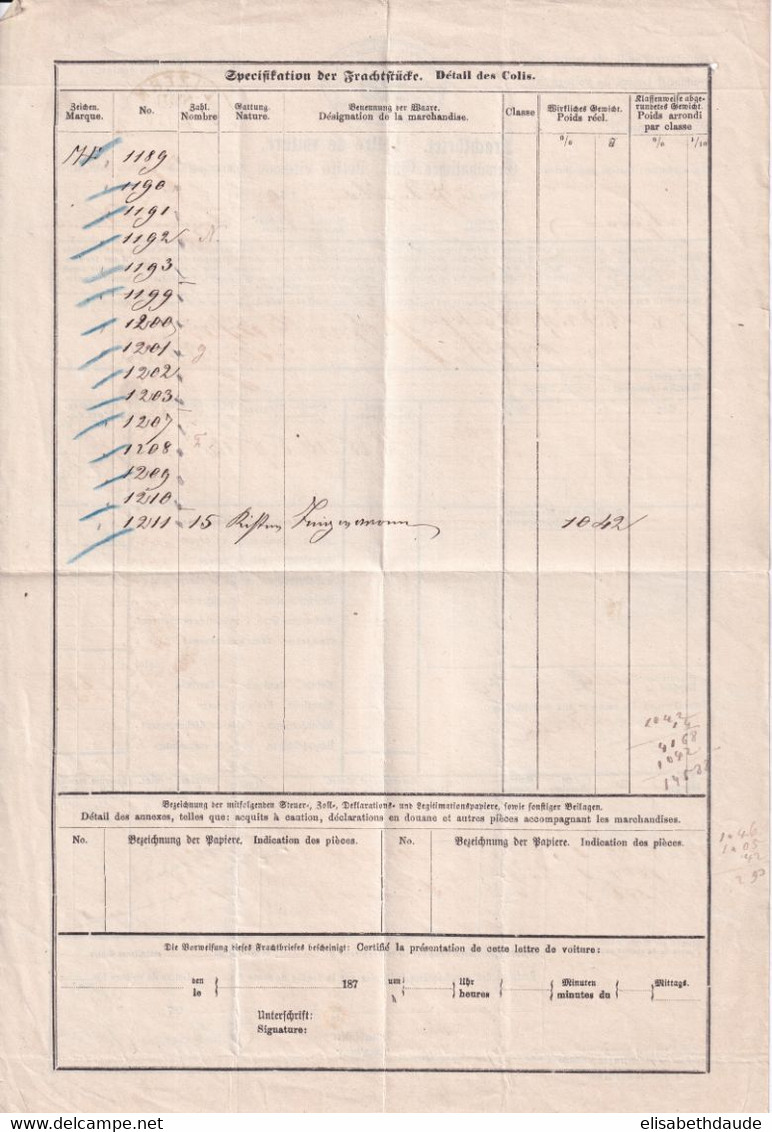 Spezifikation der Frachtstücke. Détail des Colis.
Zeichen. Marque. No. Zahl. Nombre Gattung. Nature. Benennung der Waare. Désignation de la marchandise. Classe Wirkliches Gewicht. Poids réel. Klassenweise abgerundetes Gewicht. Poids arrondi par classe
1189
1190
1191
1192
1193
1199
1200
1201
1202
1203
1207
1208
1209
1210
1211 15 Kisten 1042
1042
14
4168
1042
14588
Bezeichnung der mitfolgenden Steuer-, Zoll-, Deklarations- und Legitimationspapiere, sowie sonstiger Beilagen.
Détail des annexes, telles que: acquits à caution, déclarations en douane et autres pièces accompagnant les marchandises.
No. Bezeichnung der Papiere. Indication des pièces. No. Bezeichnung der Papiere. Indication des pièces.
Die Vorweisung dieses Frachtbriefes bescheinigt: Certifié la présentation de cette lettre de voiture:
den le 187 um h Uhr heures Minuten minutes du Mittags.
Unterschrift:
Signature:
elisabethdaude